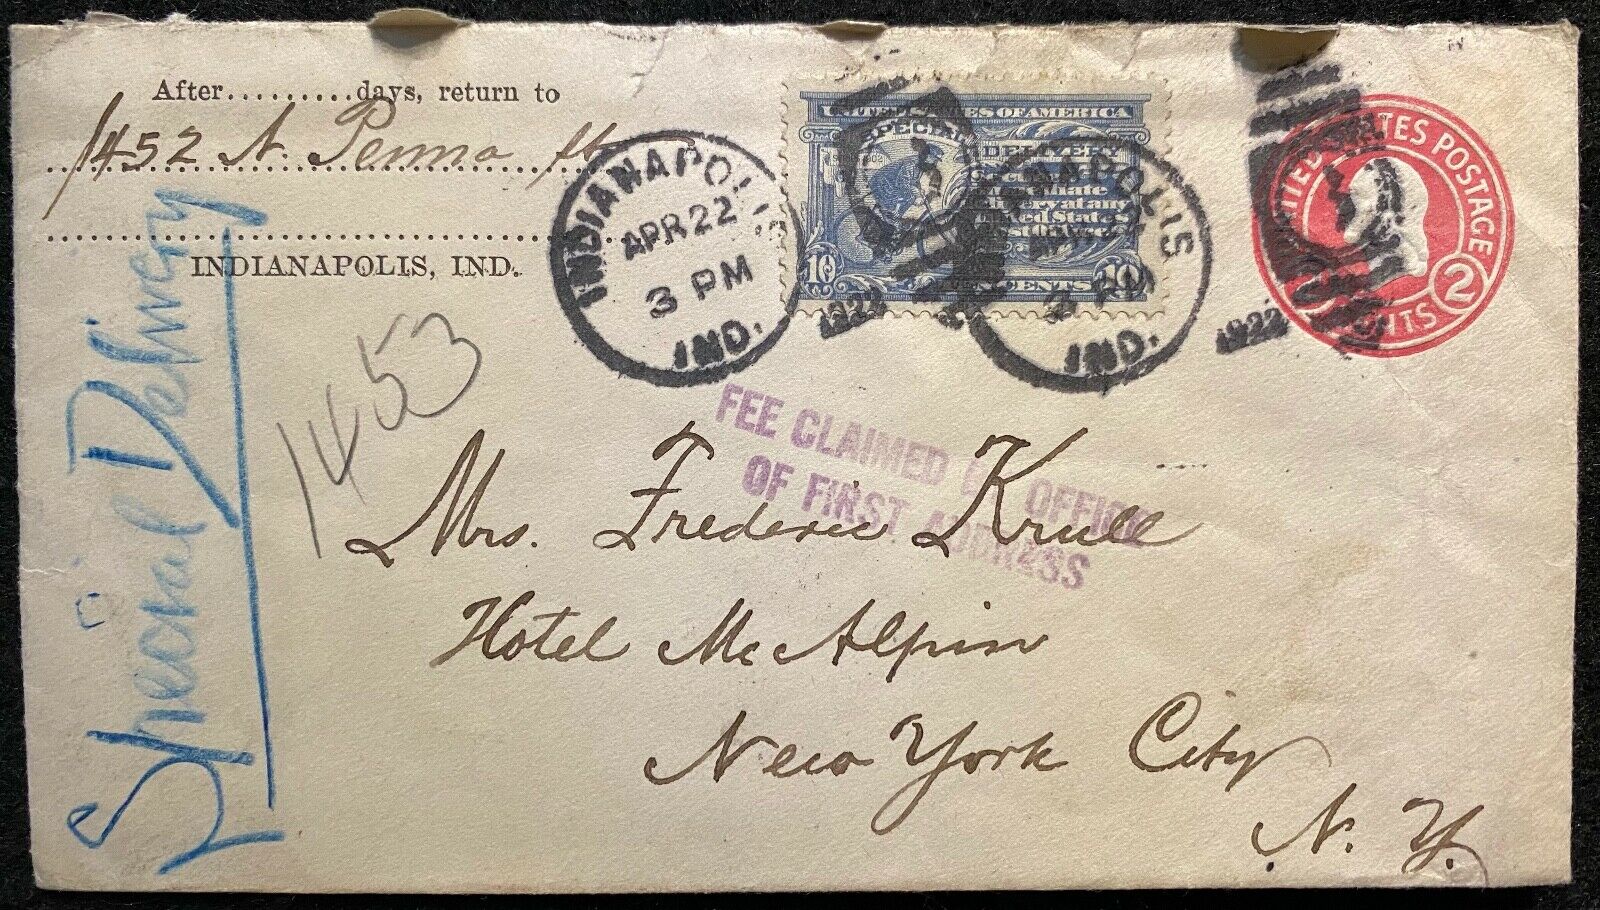 After.........days, return to
1452 N. Penna St
INDIANAPOLIS, IND.
Special Delivery
1453
INDIANAPOLIS
APR 22
3 PM
IND.
1922
UNITED STATES OF AMERICA
SPECIAL
DELIVERY
Secures
Immediate
Delivery at any
United States
Post Office
10
TEN CENTS
10
INDIANAPOLIS
IND.
1922
UNITED STATES POSTAGE
2
CENTS
FEE CLAIMED BY OFFICE
OF FIRST ADDRESS
Mrs. Frederic Krull
Hotel McAlpin
New York City
N. Y.